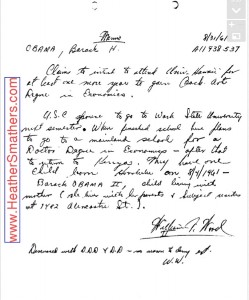 Memo
8/31/61
OBAMA, Barack H.
A11938537
Claims to intend to attend Univ. Hawaii for
at least one more year to gain Bach. Arts
Degree in Economics.
U.S.C spouse to go to Wash State University
next semester. When finished school
to a mainland school for a
Doctor Degree in Economics - after that
to return to Kenya. They have one
child born Honolulu on 8/4/1961 -
Barack OBAMA II, child living with
mother (she lives with her parents & subject resides
at 1482 St.).
William Wood
Discussed with D.D.D & D.D -
W.W.
www.HeatherSmathers.com